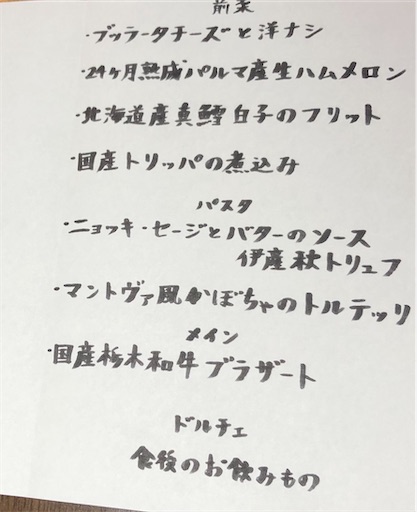 前菜
・ブッラータチーズと洋ナシ
・24ヶ月熟成パルマ産生ハムメロン
・北海道産真鱈白子のフリット
・国産トリッパの煮込み
パスタ
・ニョッキ・セージとバターのソース
伊産秋トリュフ
・マントヴァ風かぼちゃのトルテッリ
メイン
・国産栃木和牛ブラザート
ドルチェ
食後のお飲みもの